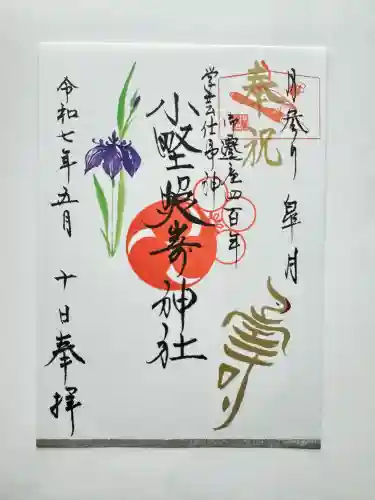 月参り 皐月
奉祝
御鎮座四百年
営芸仕事神
小野照崎神社
令和七年五月 十日奉拝